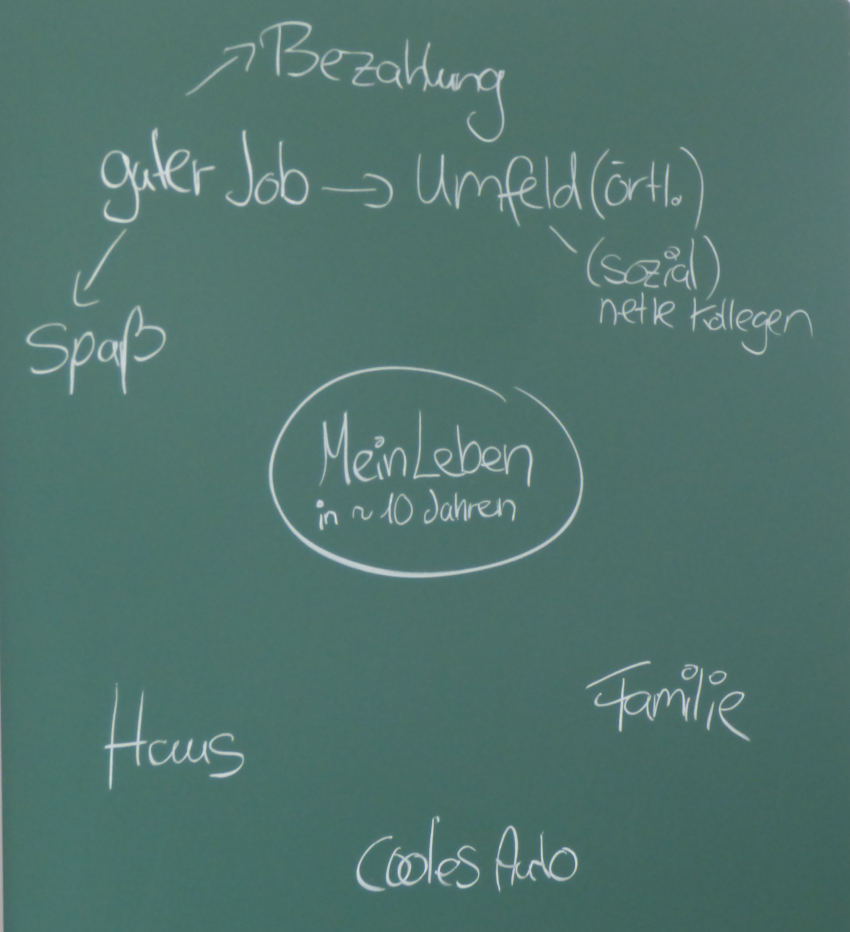 Bezahlung
guter Job → Umfeld (örtl.)
(sozial)
nette Kollegen
Spaß
Mein Leben
in ~ 10 Jahren
Familie
Haus
Cooles Auto